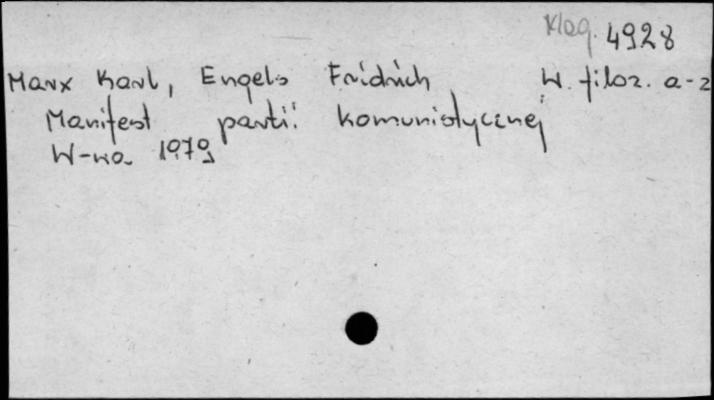 Klag. 4928
Marx Karl, Engels Fridrich W. filoz. a-z
Manifest partii komunistycznej
W-wa 1979